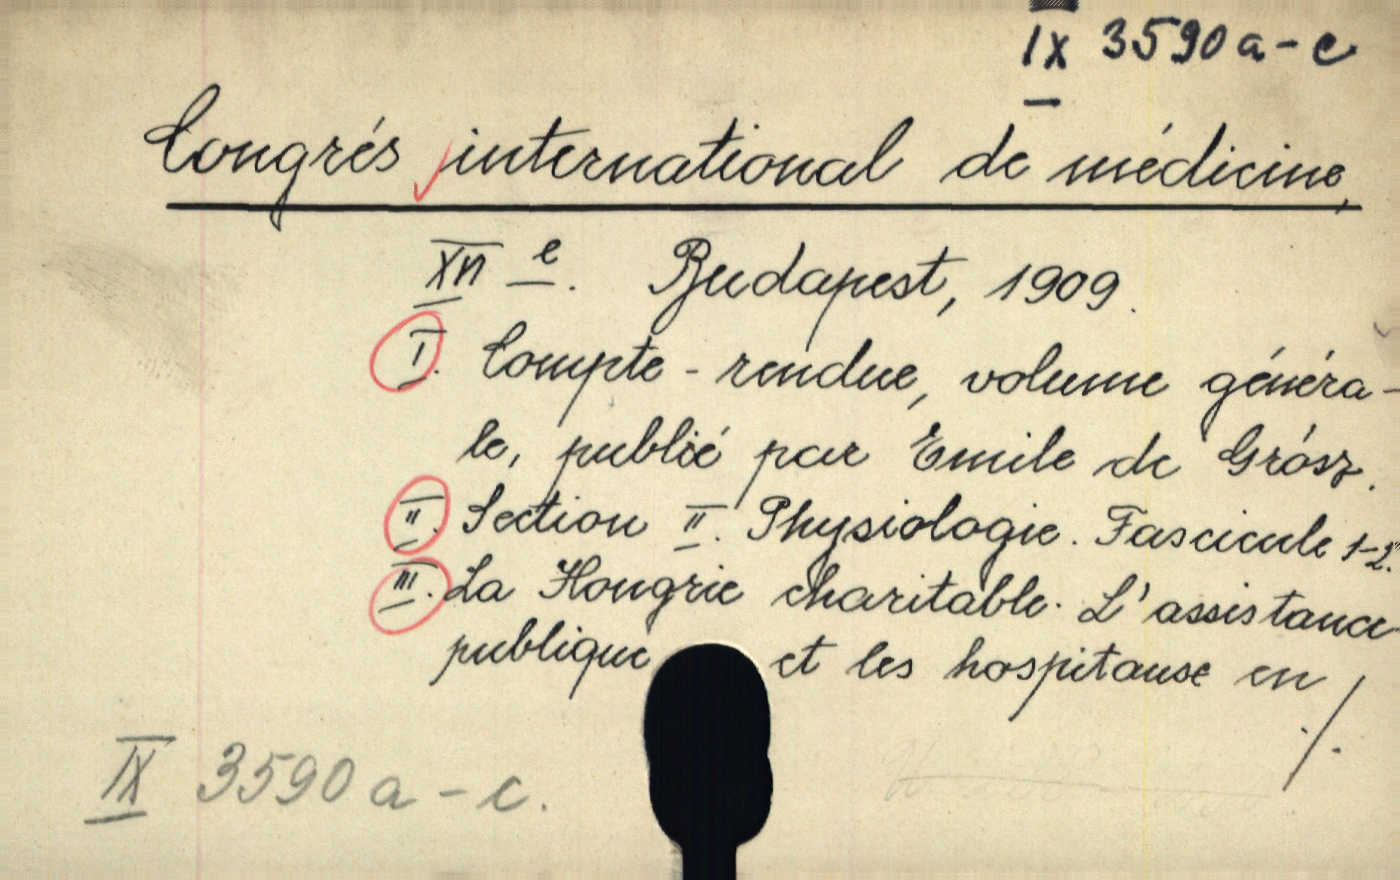 IX 3590 a-c
Congrés international de médicine,
XVI e. Budapest, 1909.
I. Compte-rendue, volume généra-
le, publié par Emile de Grósz.
II. Section II. Physiologie. Fascicule 1-2.
III. La Hongrie charitable. L'assistance
publique et les hospitause en
./.
IX 3590 a-c.